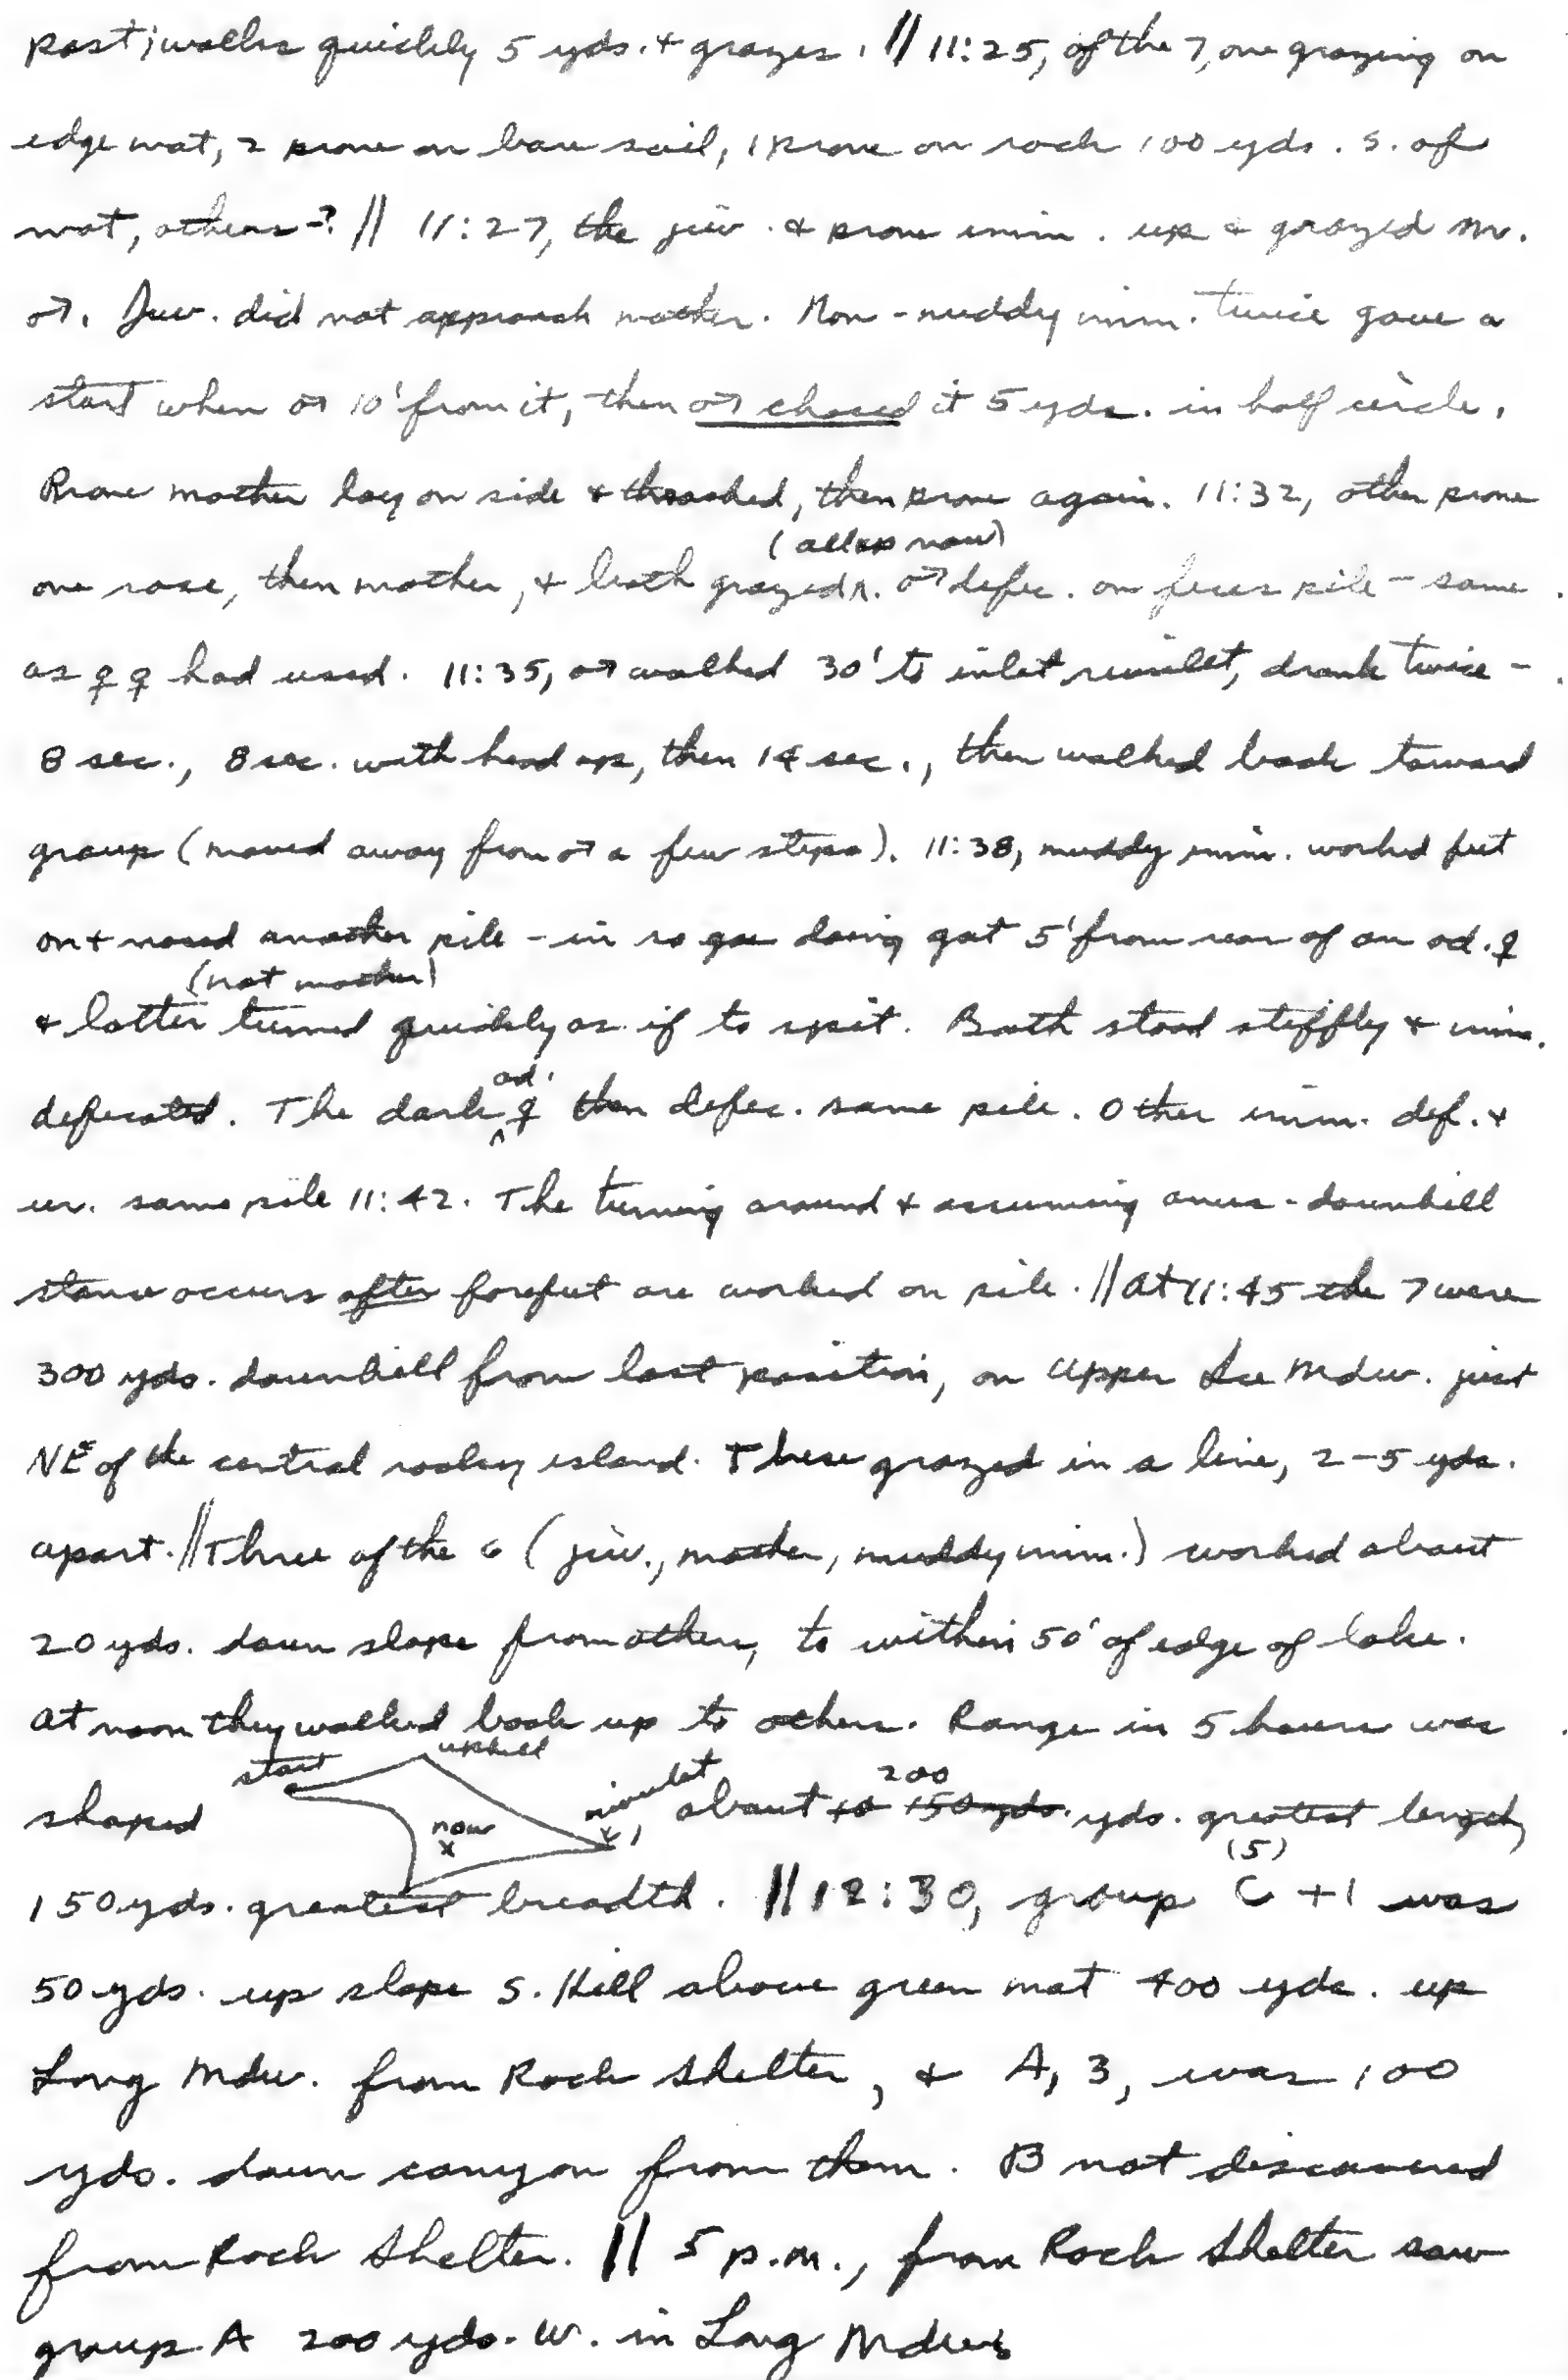 past; walks quickly 5 yds. & grazes. // 11:25, of the 7, one grazing on
edge mat, 2 prone on bare soil, 1 prone on rock 100 yds. S. of
mat, others -? // 11:27, the juv. & prone imm. up & grazed nr.
♂. Juv. did not approach mother. Non-muddy imm. twice gave a
start when ♂ 10' from it, then ♂ chased it 5 yds. in half circle.
Prone mother lay on side & thrashed, then prone again. 11:32, other prone
(all up now)
one rose, then mother, & both grazed ^. ♂ defec. on feces pile - same
as ♀♀ had used. 11:35, ♂ walked 30' to inlet rivulet, drank twice -
8 sec., 8 sec. with head up, then 14 sec., then walked back toward
group (moved away from ♂ a few steps). 11:38, muddy imm. worked feet
on & nosed another pile - in so doing got 5' from rear of an ad. ♀
(not mother)
& latter turned quickly as if to spit. Both stood stiffly & imm.
ad.
defecated. The dark ^ ♀ then defec. same pile. Other imm. def. &
ur. same pile 11:42. The turning around & assuming anus-downhill
stance occurs after forefeet are worked on pile. // At 11:45 the 7 were
300 yds. downhill from last position, on Upper Mdw. just
NE of the central rocky island. These grazed in a line, 2-5 yds.
apart. // Three of the 6 (juv., mother, muddy imm.) worked about
20 yds. down slope from others, to within 50' of edge of lake.
At noon they walked back up to others. Range in 5 hours was
start uphill rivulet 200
shaped now x , about 150 yds. yds. greatest length,
(5)
150 yds. greatest breadth. // 12:30, group C +1 was
50 yds. up slope S. Hill above green mat 400 yds. up
Long Mdw. from Rock Shelter, & A, 3, was 100
yds. down canyon from them. B not discovered
from Rock Shelter. // 5 p.m., from Rock Shelter saw
group A 200 yds. W. in Long Mdw